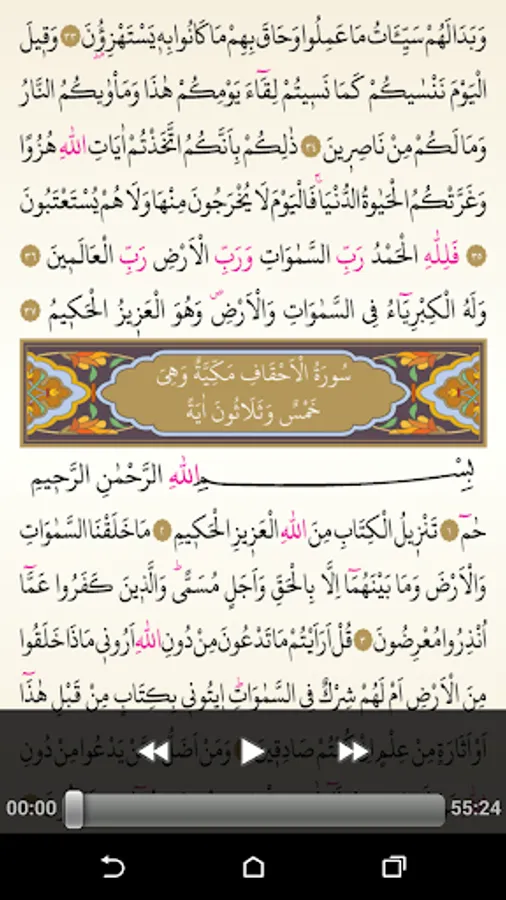 وَبَدَا لَهُمْ سَيِّـَٔاتُ مَا عَمِلُوا وَحَاقَ بِهِمْ مَا كَانُوا بِهٖ يَسْتَهْزِؤُ۫نَ ٣٣ وَقٖيلَ
الْيَوْمَ نَنْسٰيكُمْ كَمَا نَسٖيتُمْ لِقَٓاءَ يَوْمِكُمْ هٰذَا وَمَأْوٰيكُمُ النَّارُ
وَمَا لَكُمْ مِنْ نَاصِرٖينَ ٣٤ ذٰلِكُمْ بِاَنَّكُمُ اتَّخَذْتُمْ اٰيَاتِ اللّٰهِ هُزُوًا
وَغَرَّتْكُمُ الْحَيٰوةُ الدُّنْيَاۚ فَالْيَوْمَ لَا يُخْرَجُونَ مِنْهَا وَلَا هُمْ يُسْتَعْتَبُونَ
٣٥ فَلِلّٰهِ الْحَمْدُ رَبِّ السَّمٰوَاتِ وَرَبِّ الْاَرْضِ رَبِّ الْعَالَمٖينَ ٣٦
وَلَهُ الْكِبْرِيَٓاءُ فِي السَّمٰوَاتِ وَالْاَرْضِۖ وَهُوَ الْعَزٖيزُ الْحَكٖيمُ ٣٧
سُورَةُ الْاَحْقَافِ مَكِّيَّةٌ وَهِيَ
خَمْسٌ وَثَلَاثُونَ اٰيَةً
بِسْمِ اللّٰهِ الرَّحْمٰنِ الرَّحٖيمِ
حٰمٓ ١ تَنْزٖيلُ الْكِتَابِ مِنَ اللّٰهِ الْعَزٖيزِ الْحَكٖيمِ ٢ مَا خَلَقْنَا السَّمٰوَاتِ
وَالْاَرْضَ وَمَا بَيْنَهُمَٓا اِلَّا بِالْحَقِّ وَاَجَلٍ مُسَمًّىۜ وَالَّذٖينَ كَفَرُوا عَمَّٓا
اُنْذِرُوا مُعْرِضُونَ ٣ قُلْ اَرَاَيْتُمْ مَا تَدْعُونَ مِنْ دُونِ اللّٰهِ اَرُونٖي مَاذَا خَلَقُوا
مِنَ الْاَرْضِ اَمْ لَهُمْ شِرْكٌ فِي السَّمٰوَاتِۜ اٖيتُونٖي بِكِتَابٍ مِنْ قَبْلِ هٰذَٓا
اَوْ اَثَارَةٍ مِنْ عِلْمٍ اِنْ كُنْتُمْ صَادِقٖينَ وَمَنْ اَضَلُّ مِمَّنْ يَدْعُوا مِنْ دُونِ
00:00 55:24